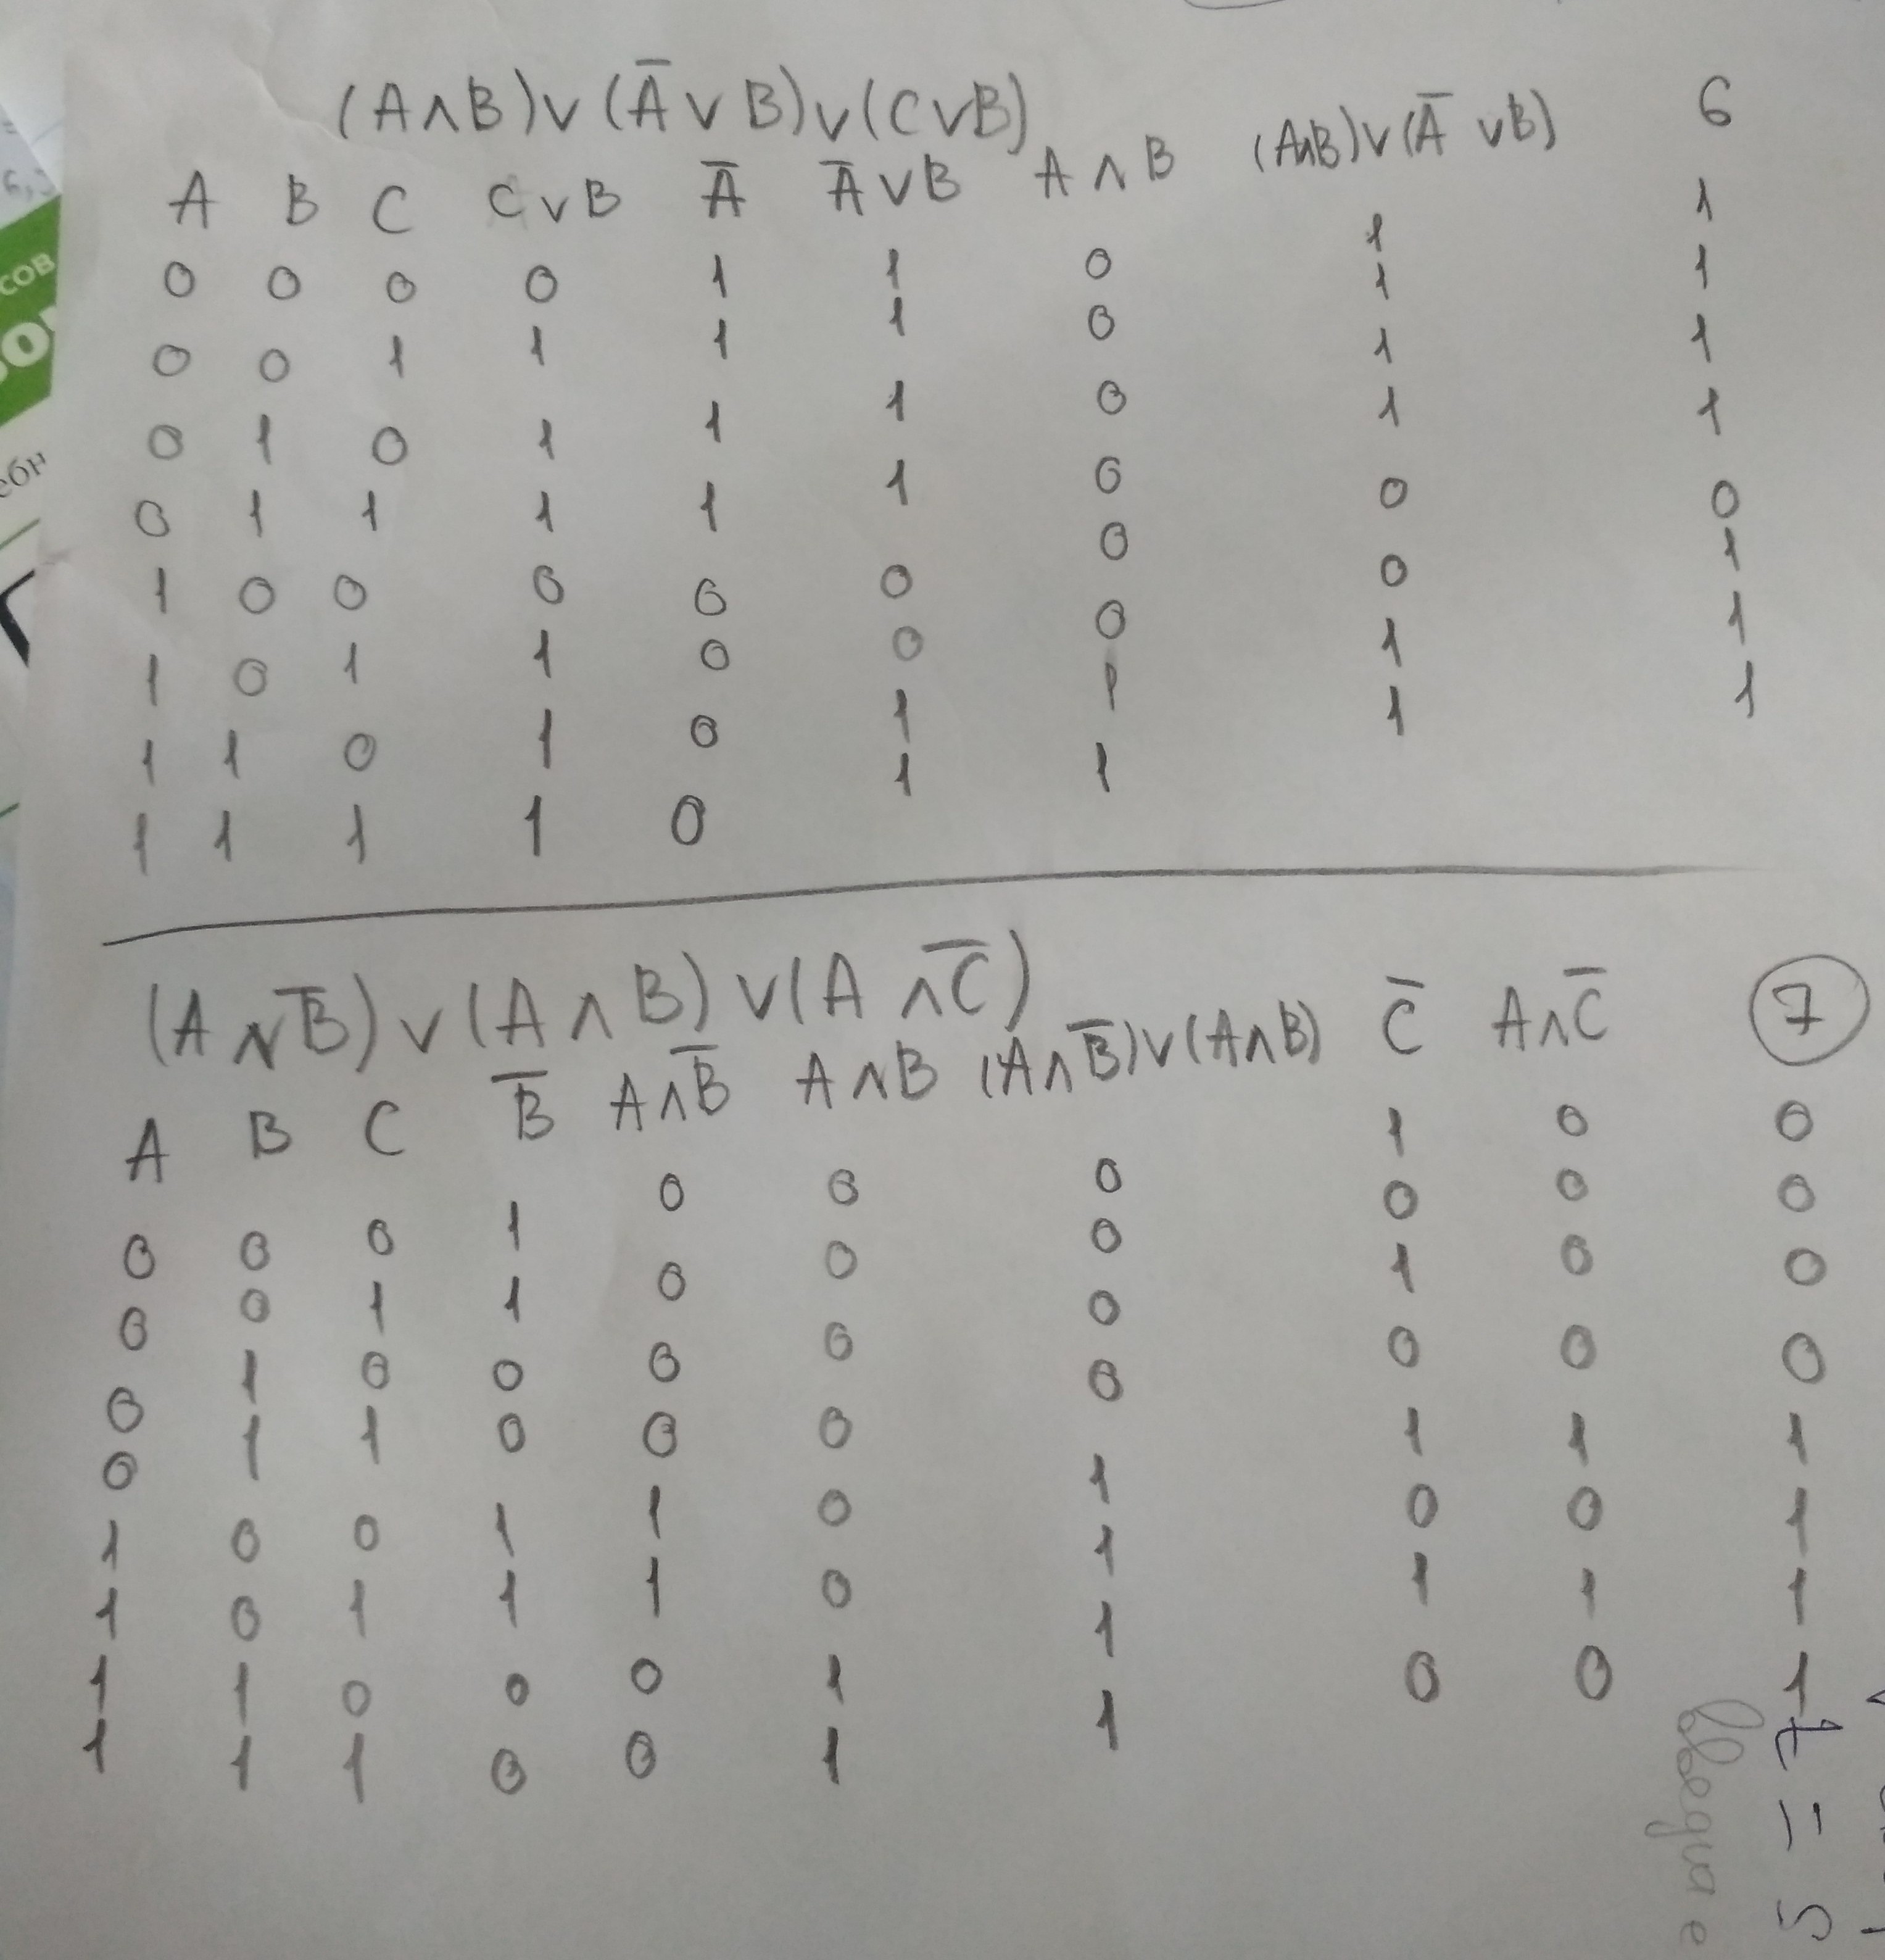 (A∧B)∨(A̅∨B)∨(C∨B)
A B C C∨B A̅ A̅∨B A∧B (A∧B)∨(A̅∨B) 6
0 0 0 0 1 1 0 1 1
0 0 1 1 1 1 0 1 1
0 1 0 1 1 1 0 1 1
0 1 1 1 1 1 0 1 1
1 0 0 0 0 0 0 0 0
1 0 1 1 0 0 0 0 1
1 1 0 1 0 1 1 1 1
1 1 1 1 0 1 1 1 1
(A∧B̅)∨(A∧B)∨(A∧C̅)
A B C B̅ A∧B̅ A∧B (A∧B̅)∨(A∧B) C̅ A∧C̅ 7
0 0 0 1 0 0 0 1 0 0
0 0 1 1 0 0 0 0 0 0
0 1 0 0 0 0 0 1 0 0
0 1 1 0 0 0 0 0 0 0
1 0 0 1 1 0 1 1 1 1
1 0 1 1 1 0 1 0 0 1
1 1 0 0 0 1 1 1 1 1
1 1 1 0 0 1 1 0 0 1
сов